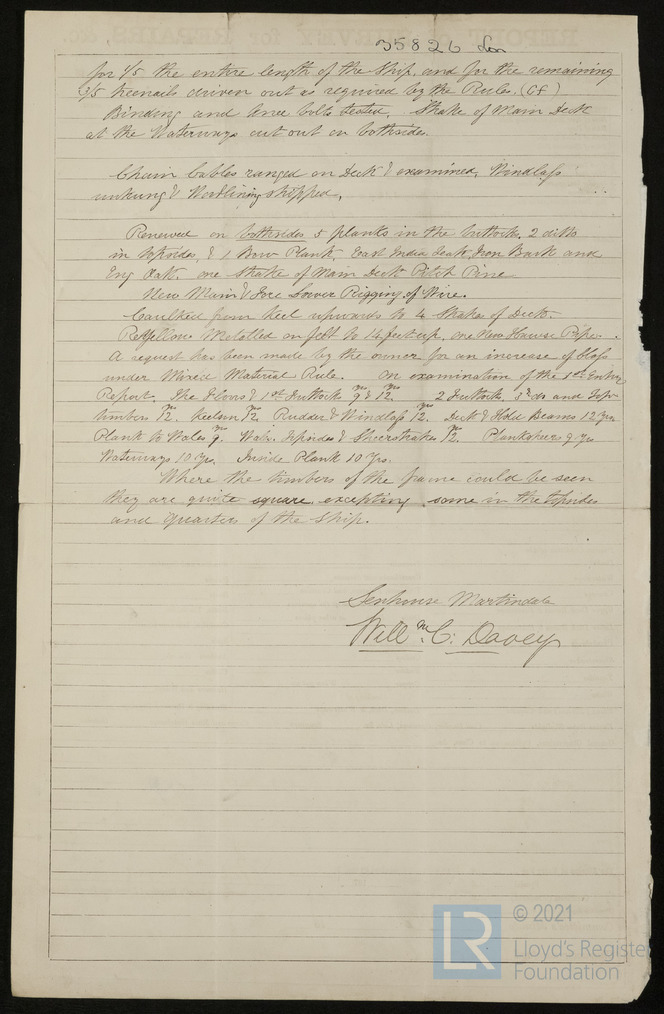 35826 Lon
for 1/5 the entire length of the Ship, and for the remaining
3/5 treenails driven out as required by the Rules, (CF)
Binding and knee bolts tested. Strake of Main Deck
at the Waterways cut out on bothsides.
Chain Cables ranged on Deck & examined, Windlass
unhung & Newlining shipped.
Renewed on bothsides 5 planks in the buttock. 2 ditto
in topside, & 1 Bow Plank, East India Teak, Iron Bark and
Eng Oak. one Strake of Main Deck Pitch Pine
New Main & Fore Lower Rigging of Wire.
Caulked from Keel upwards to 4 Strakes of Deck.
ReYellow Metalled on felt to 14 feet up, one New Hawse Pipe.
A request has been made by the owner for an increase of Class
under Mixed Material Rule. On examination of the 1st Entry
Report. The Floors & 1st Futtocks 9 & 12 yrs 2 Futtocks, 3rds and Top
timbers 12 yrs. Keelson 12 yrs Rudder & Windlass 12 yrs. Deck & Hold Beams 12 Yrs
Plank to Wales 9 yrs. Wales, Topsides & Sheerstrakes 12 yrs. Plankshears 9 yrs
Waterways 10 Yrs. Inside Plank 10 Yrs.
Where the timbers of the frame could be seen
they are quite square, excepting some in the topsides
and quarters of the Ship.
Senhouse Martindale
Willm. C: Davey
LR
© 2021
Lloyd's Register
Foundation